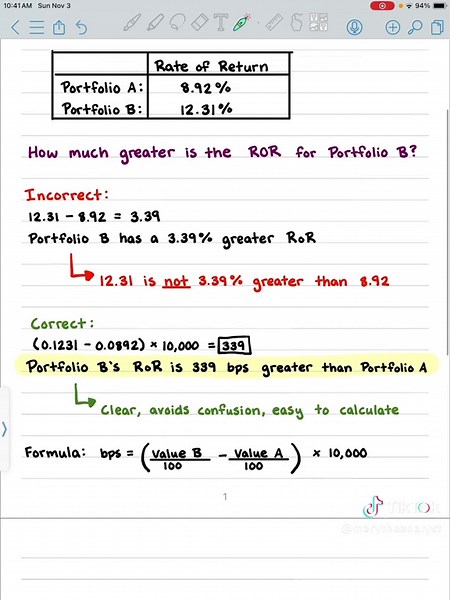 10:41AM Sun Nov 3
94%
Rate of Return
Portfolio A: 8.92%
Portfolio B: 12.31%
How much greater is the ROR for Portfolio B?
Incorrect:
12.31 - 8.92 = 3.39
Portfolio B has a 3.39% greater RoR
12.31 is not 3.39% greater than 8.92
Correct:
(0.1231 - 0.0892) × 10,000 = 339
Portfolio B's RoR is 339 bps greater than Portfolio A
Clear, avoids confusion, easy to calculate
Formula: bps = (Value B / 100 - Value A / 100) × 10,000
1
TikTok